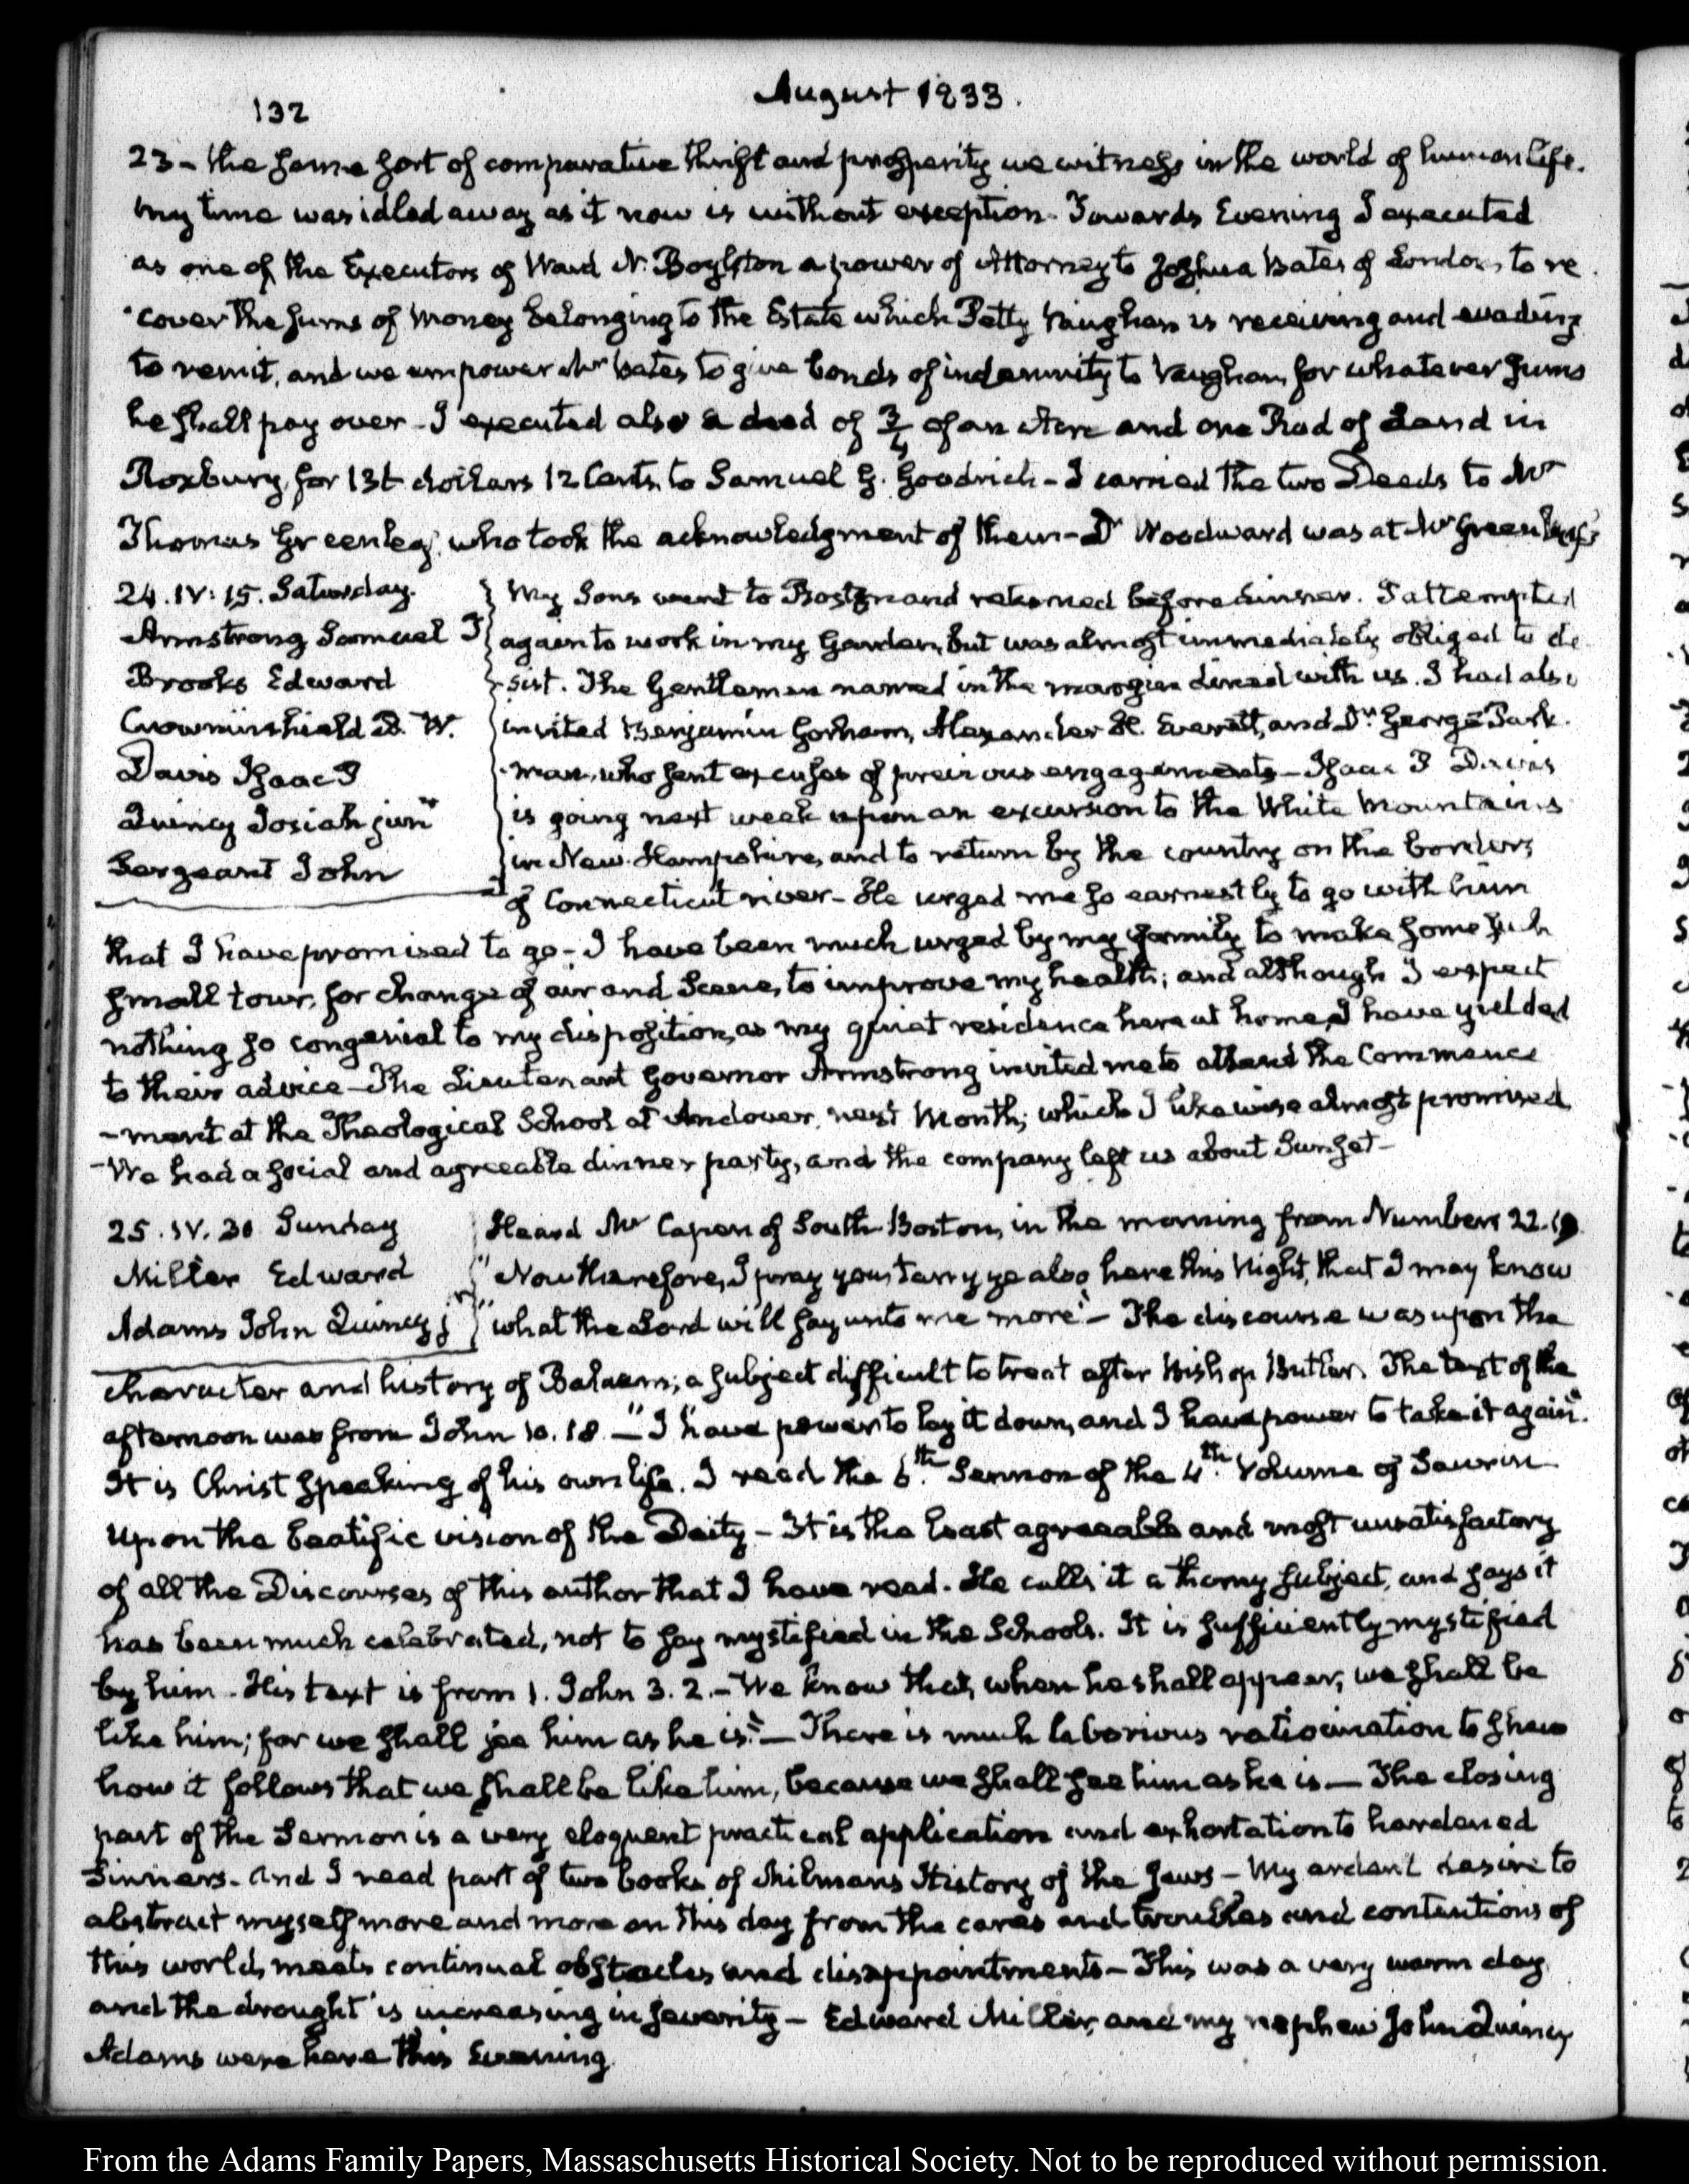 132
August 1833.
23 - the same sort of comparative thrift and prosperity we witness in the world of human life.
My time was idled away as it now is without exception. Towards Evening I executed
as one of the Executors of Ward N. Boylston a power of Attorney to Joshua Bates of London, to re
-cover the sums of Money belonging to the Estate which Petty Vaughan is receiving and evading
to remit, and we empower Mr Bates to give bonds of indemnity to Vaughan, for whatever sums
he shall pay over - I executed also a deed of 3/4 of an Acre and one Rod of Land in
Roxbury, for dollars 12 Cents, to Samuel G. Goodrich - I carried the two Deeds to Mr
Thomas Greenleaf, who took the acknowledgment of them - Dr Woodward was at Mr Greenleaf's
24. IV: 15. Saturday.
Armstrong Samuel T
Brooks Edward
Crowninshield B. W.
Davis Isaac P
Quincy Josiah junr
Sergeant John
My Sons went to Boston and returned before dinner. I attempted
again to work in my Garden, but was almost immediately obliged to de
-sist. The Gentlemen named in the margin dined with us. I had also
invited Benjamin Gorham, Alexander H. Everett, and Dr. George Park
-man, who sent excuses of previous engagements - Isaac P Davis
is going next week upon an excursion to the White Mountains
in New-Hampshire, and to return by the country on the borders
of Connecticut river - He urged me so earnestly to go with him
that I have promised to go - I have been much urged by my family to make some such
small tour, for change of air and Scene, to improve my health; and although I expect
nothing so congenial to my disposition, as my quiet residence here at home, I have yielded
to their advice - The Lieutenant Governor Armstrong invited me to attend the Commence
-ment at the Theological School at Andover, next Month; which I likewise almost promised
- We had a social and agreeable dinner party, and the company left us about Sunset -
25. IV. 30 Sunday
Miller Edward
Adams John Quincy jr
Heard Mr Capen of South-Boston, in the morning from Numbers 22.19
"Now therefore, I pray you, tarry ye also here this Night, that I may know
"what the Lord will say unto me more" - The discourse was upon the
character and history of Balaam; a subject difficult to treat after Bishop Butler. The text of the
afternoon was from John 10. 18 - "I have power to lay it down, and I have power to take it again".
It is Christ speaking of his own life. I read the 6th. Sermon of the 4th. Volume of Saurin
upon the beatific vision of the Deity - It is the least agreeable and most unsatisfactory
of all the Discourses of this author that I have read. He calls it a thorny subject, and says it
has been much celebrated, not to say mystified in the Schools. It is sufficiently mystified
by him - His text is from 1. John 3. 2. - We know that, when he shall appear, we shall be
like him; for we shall see him as he is." - There is much laborious ratiocination to shew
how it follows that we shall be like him, because we shall see him as he is - The closing
part of the Sermon is a very eloquent practical application and exhortation to hardened
Sinners - And I read part of two books of Milmans History of the Jews - My ardent desire to
abstract myself more and more on this day from the cares and troubles and contentions of
this world, meets continual obstacles and disappointments - This was a very warm day
and the drought is increasing in severity - Edward Miller, and my nephew John Quincy
Adams were here this Evening.
From the Adams Family Papers, Massachusetts Historical Society. Not to be reproduced without permission.